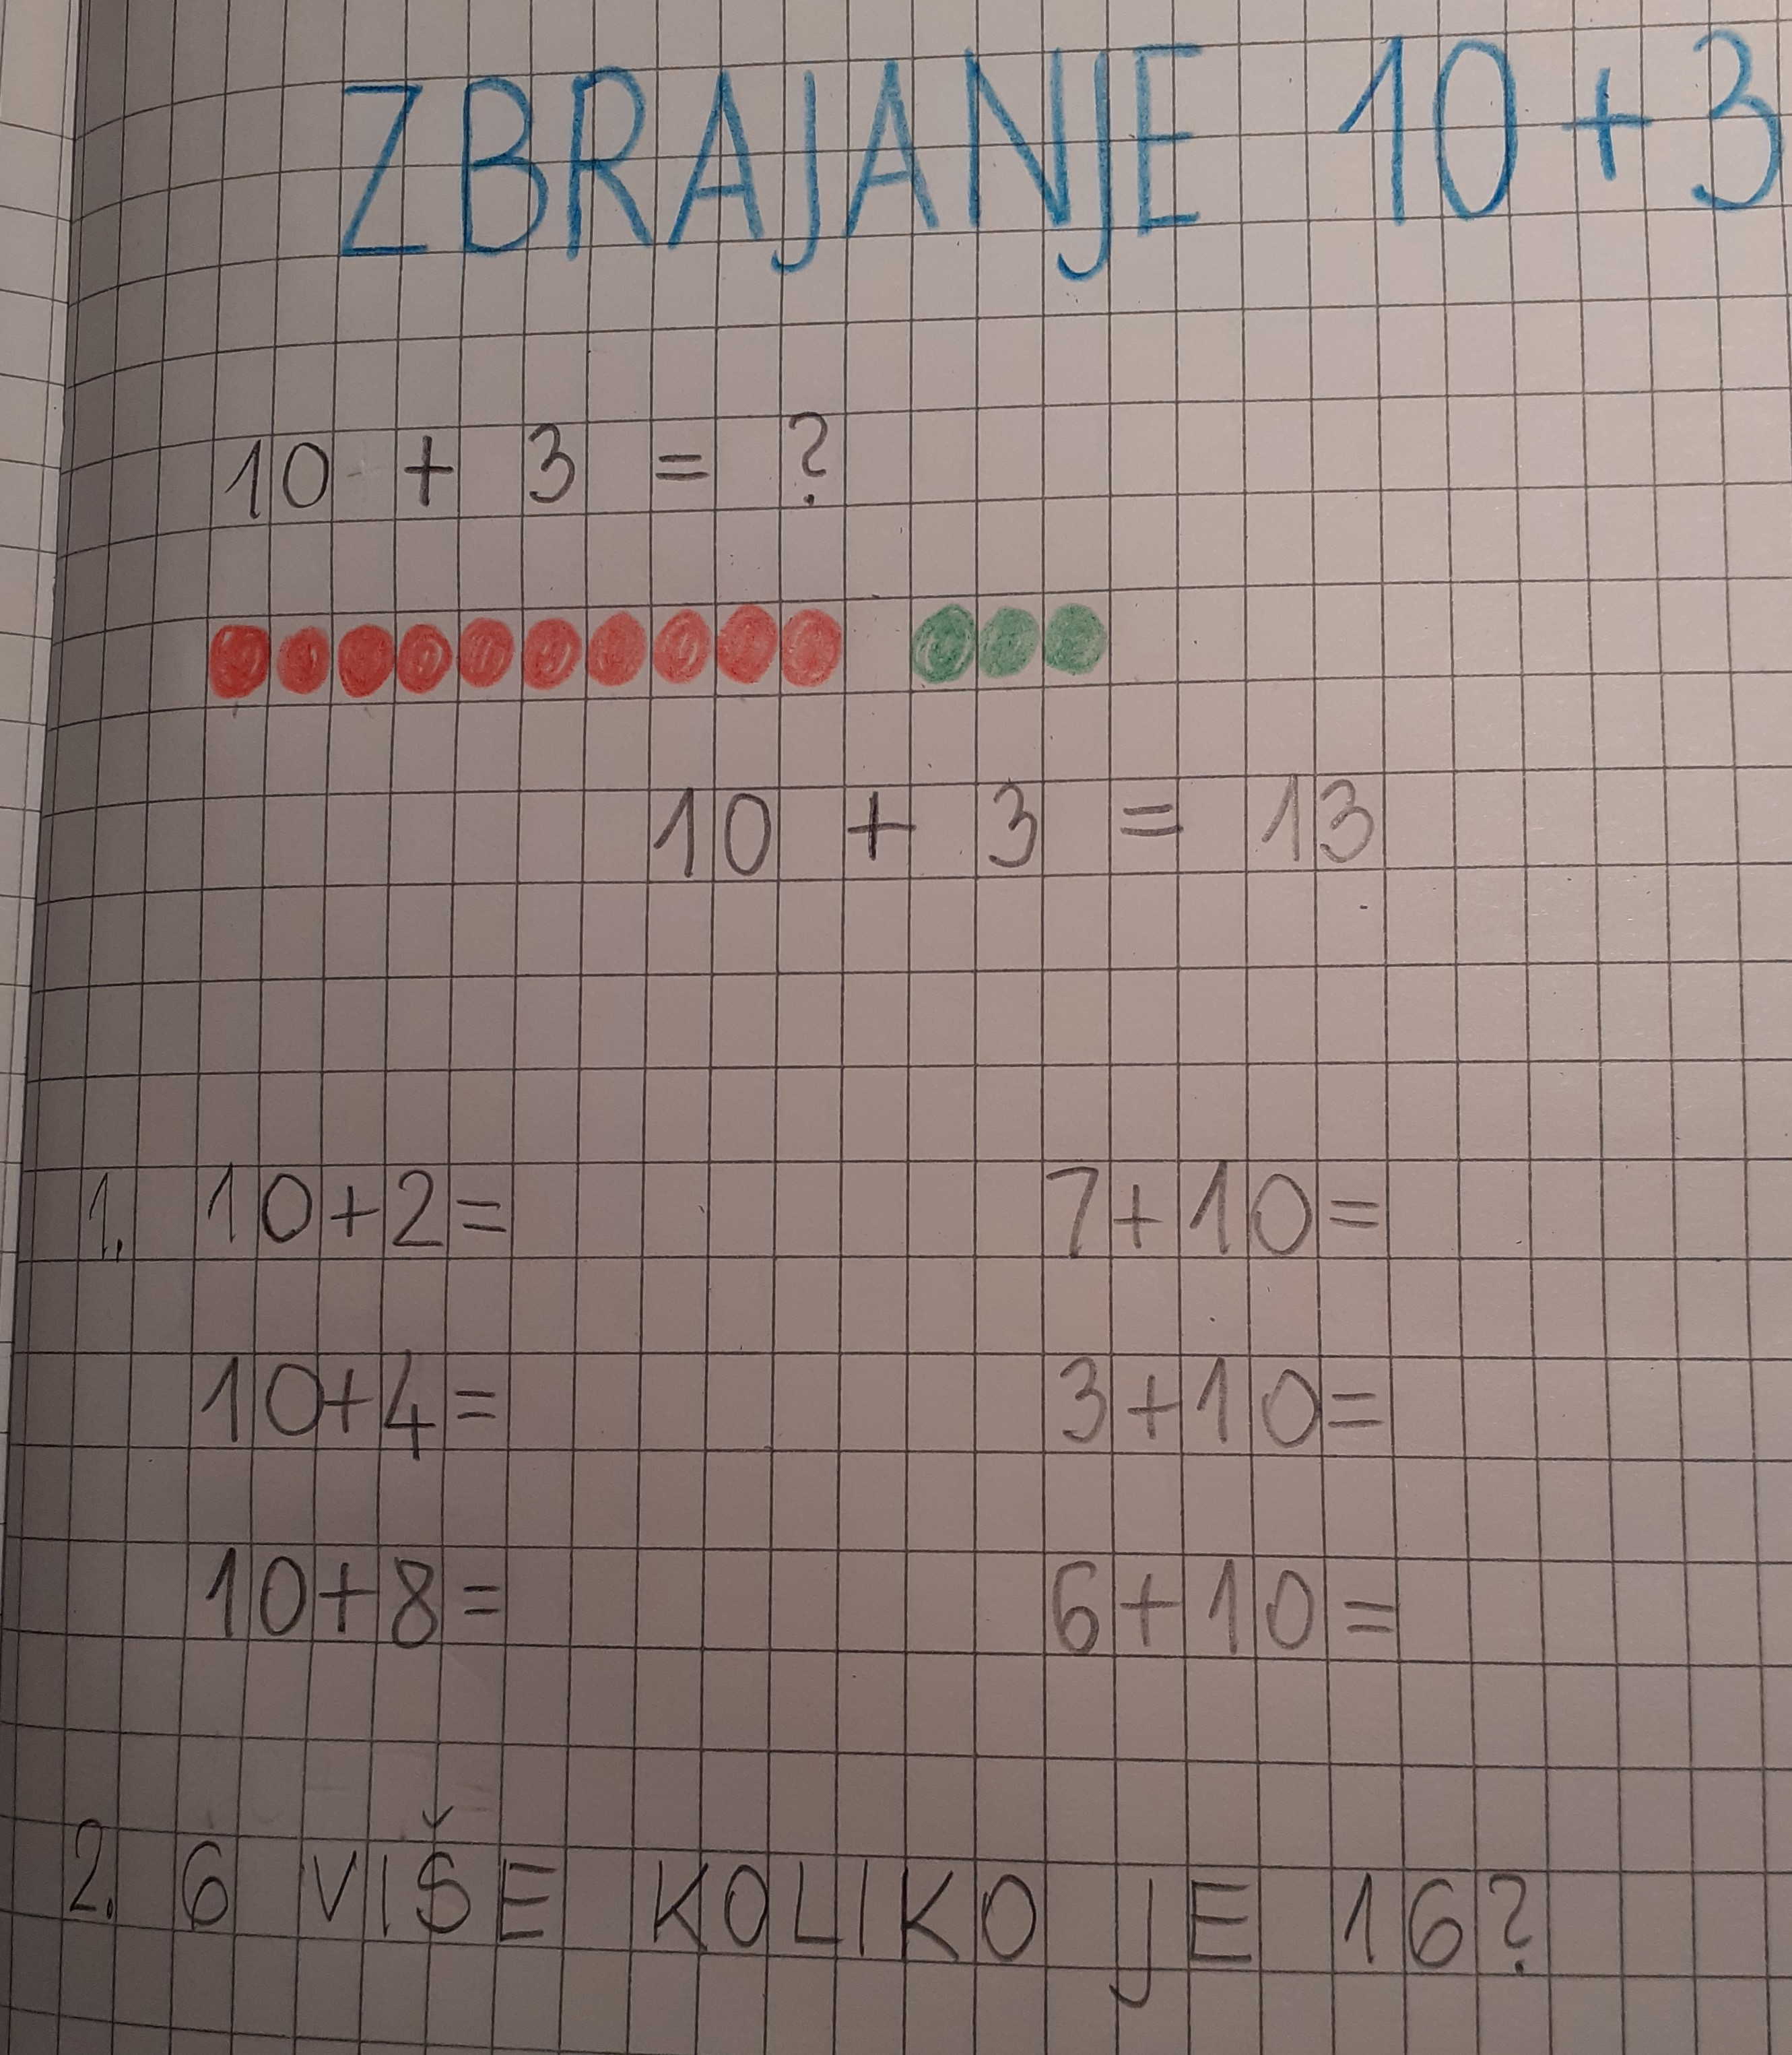 ZBRAJANJE 10+3
10 + 3 = ?
10 + 3 = 13
1. 10+2= 7+10=
10+4= 3+10=
10+8= 6+10=
2. 6 VIŠE KOLIKO JE 16?